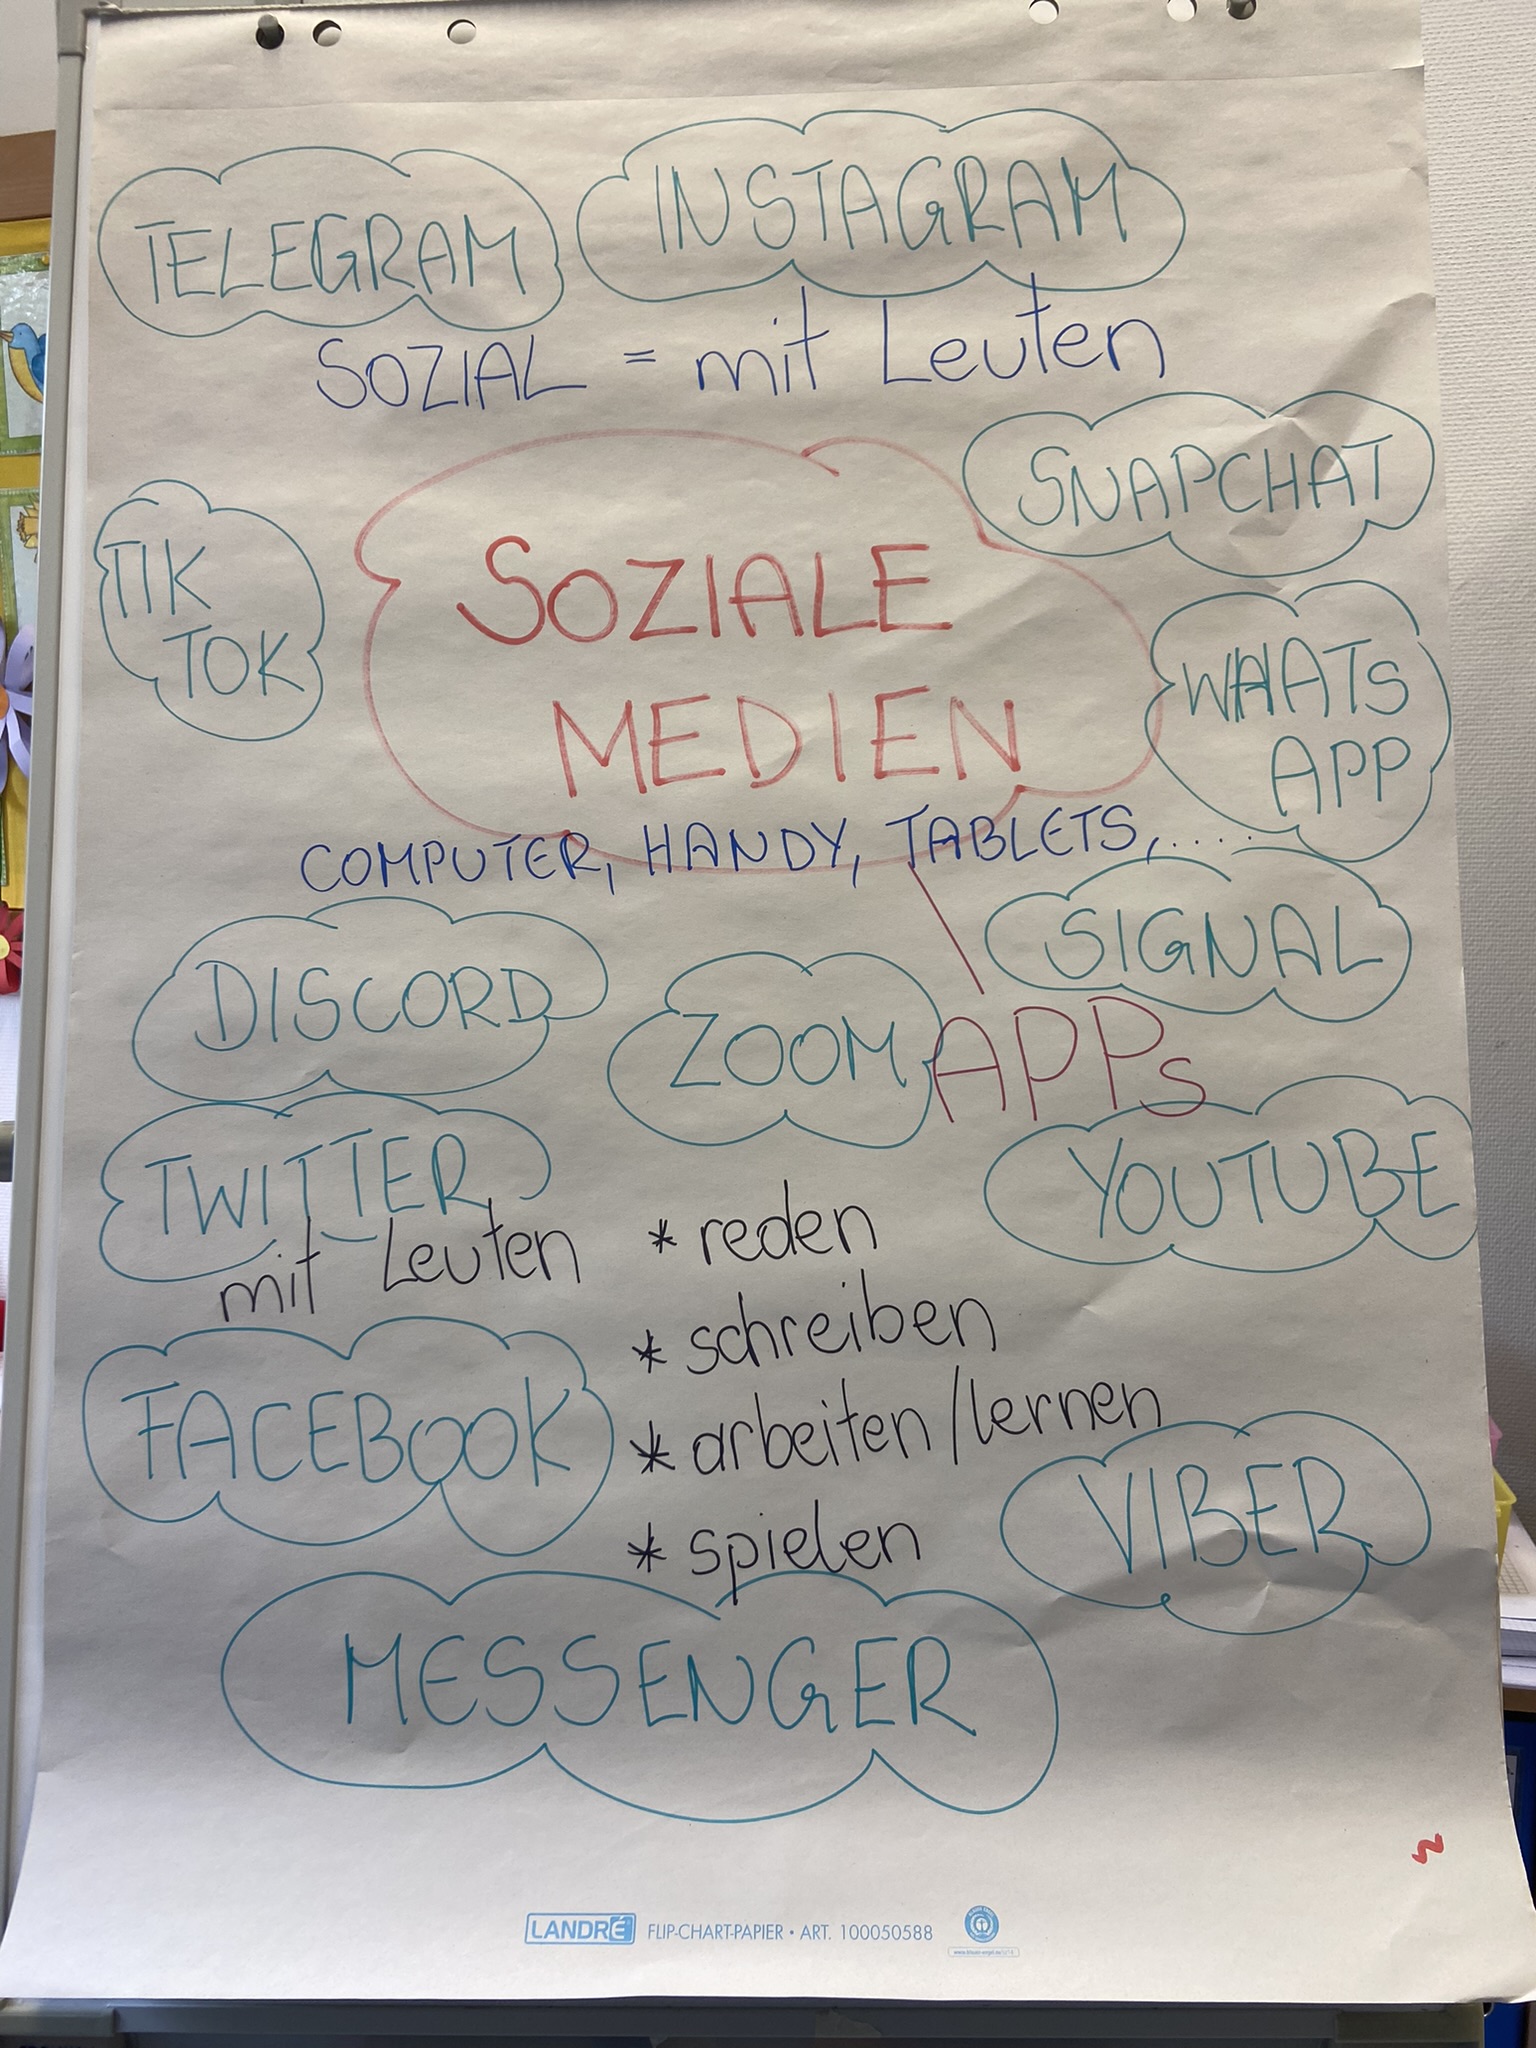 TELEGRAM
INSTAGRAM
SOZIAL = mit Leuten
SNAPCHAT
TIK
TOK
SOZIALE
MEDIEN
WHATS
APP
COMPUTER, HANDY, TABLETS,....
SIGNAL
DISCORD
ZOOM
APPs
TWITTER
YOUTUBE
mit Leuten
* reden
* schreiben
* arbeiten/lernen
* spielen
FACEBOOK
VIBER
MESSENGER
LANDRÉ FLIP-CHART-PAPIER • ART. 100050588